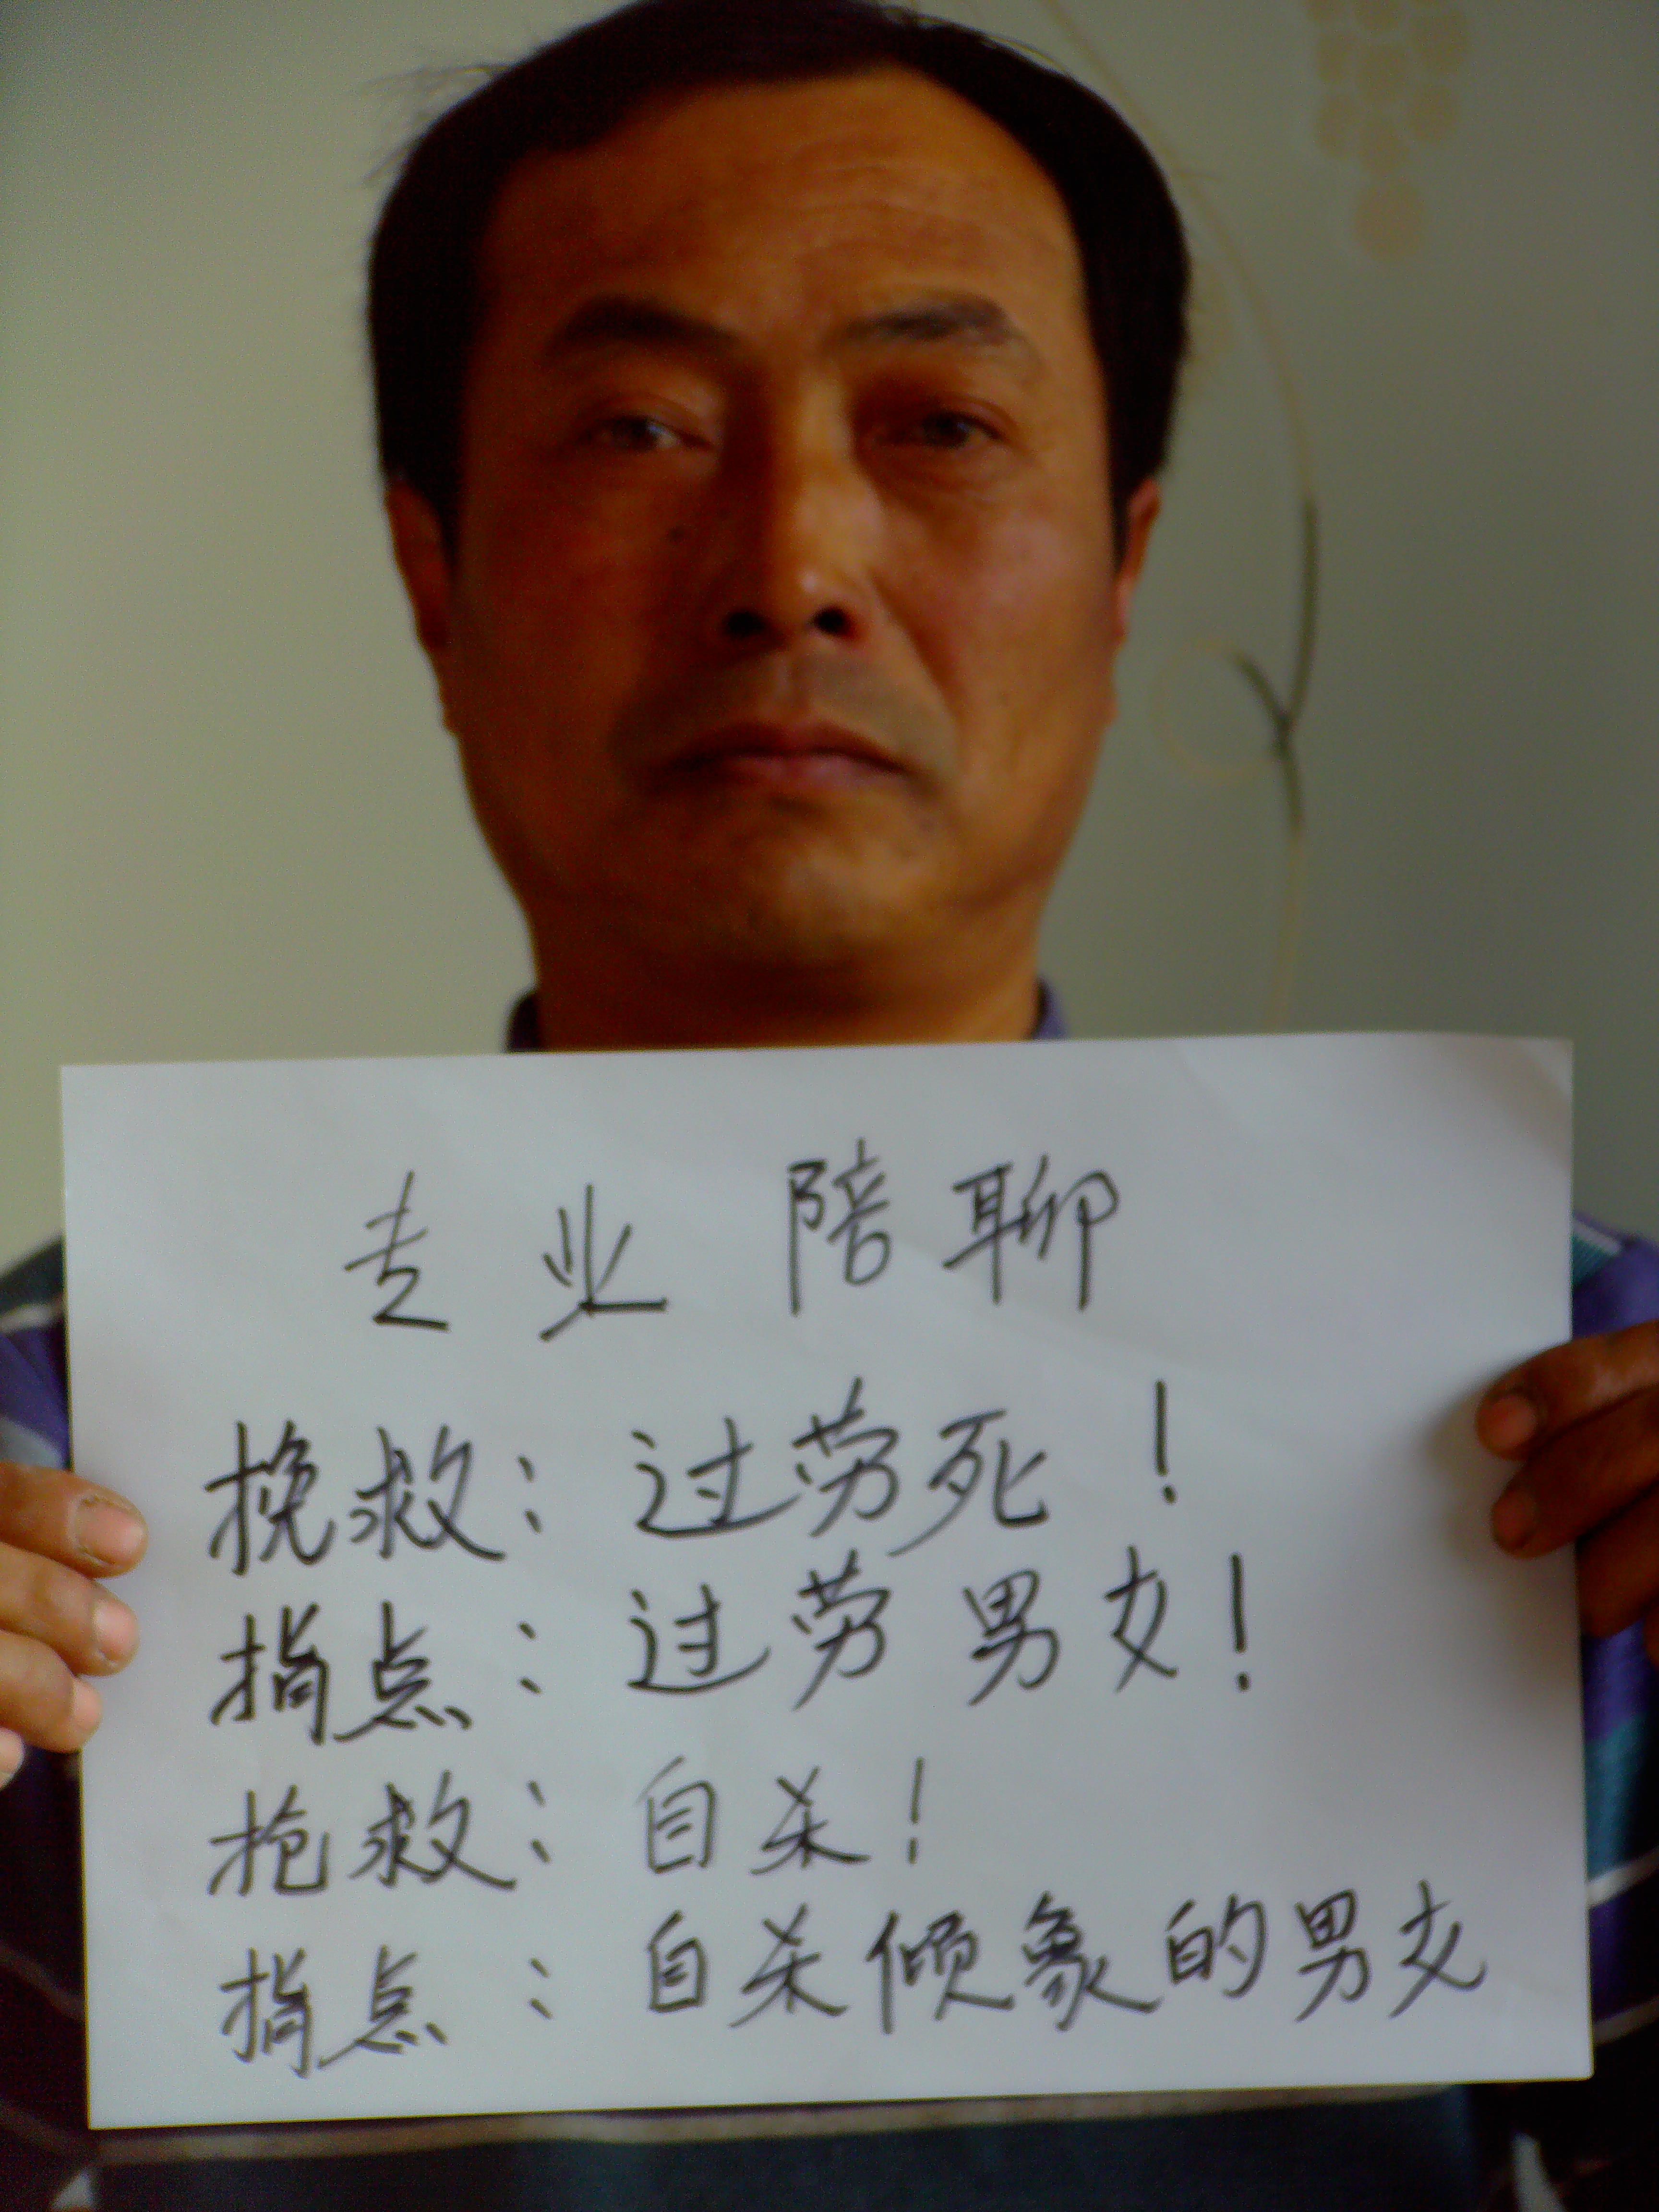 专业陪聊
挽救：过劳死！
指点：过劳男女！
抢救：自杀！
指点：自杀倾象的男女